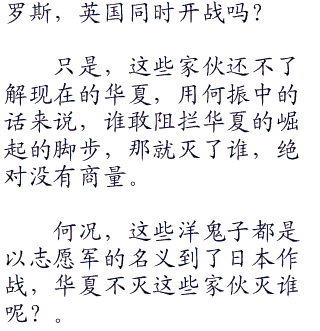 罗斯，英国同时开战吗？
只是，这些家伙还不了
解现在的华夏，用何振中的
话来说，谁敢阻拦华夏的崛
起的脚步，那就灭了谁，绝
对没有商量。
何况，这些洋鬼子都是
以志愿军的名义到了日本作
战，华夏不灭这些家伙灭谁
呢？。